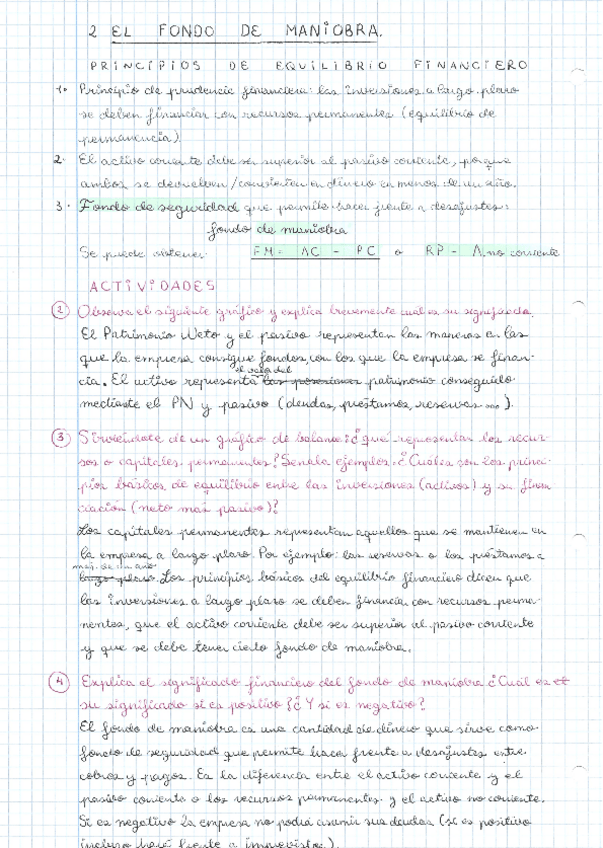 2 EL FONDO DE MANIOBRA.
PRINCIPIOS DE EQUILIBRIO FINANCIERO
1. Principio de prudencia financiera: las inversiones a largo plazo
se deben financiar con recursos permanentes (equilibrio de
permanencia)
2. El activo corriente debe ser superior al pasivo corriente, porque
ambos se devuelven/convierten en dinero en menos de un año.
3. Fondo de seguridad que permite hacer frente a desajustes:
fondo de maniobra
Se puede obtener: FM = AC - PC o RP - A.no corriente
ACTIVIDADES
2 Observa el siguiente gráfico y explica brevemente cuál es su significado.
El Patrimonio Neto y el pasivo representan las maneras en las
que la empresa consigue fondos, con los que la empresa se finan-
el valor del
cia. El activo representa las posesiones patrimonio conseguido
mediante el PN y pasivo (deudas, préstamos, reservas...).
3 Sirviéndote de un gráfico de balance: ¿qué representan los recur-
sos o capitales permanentes? Señala ejemplos. ¿Cuáles son los princi-
pios básicos de equilibrio entre las inversiones (activos) y su finan
ciación (neto más pasivo)?
Los capitales permanentes representan aquellos que se mantienen en
la empresa a largo plazo. Por ejemplo: las reservas o los préstamos a
más de un año
largo plazo. Los principios básicos del equilibrio financiero dicen que
las inversiones a largo plazo se deben financiar con recursos perma-
nentes, que el activo corriente debe ser superior al pasivo corriente
y que se debe tener cierto fondo de maniobra.
4 Explica el significado financiero del fondo de maniobra ¿Cuál es el
su significado si es positivo? ¿Y si es negativo?
El fondo de maniobra es una cantidad de dinero que sirve como
fondo de seguridad que permite hacer frente a desajustes entre
cobros y pagos. Es la diferencia entre el activo corriente y el
pasivo corriente o los recursos permanentes y el activo no corriente.
Si es negativo la empresa no podrá asumir sus deudas (si es positivo
incluso hará frente a imprevistos).